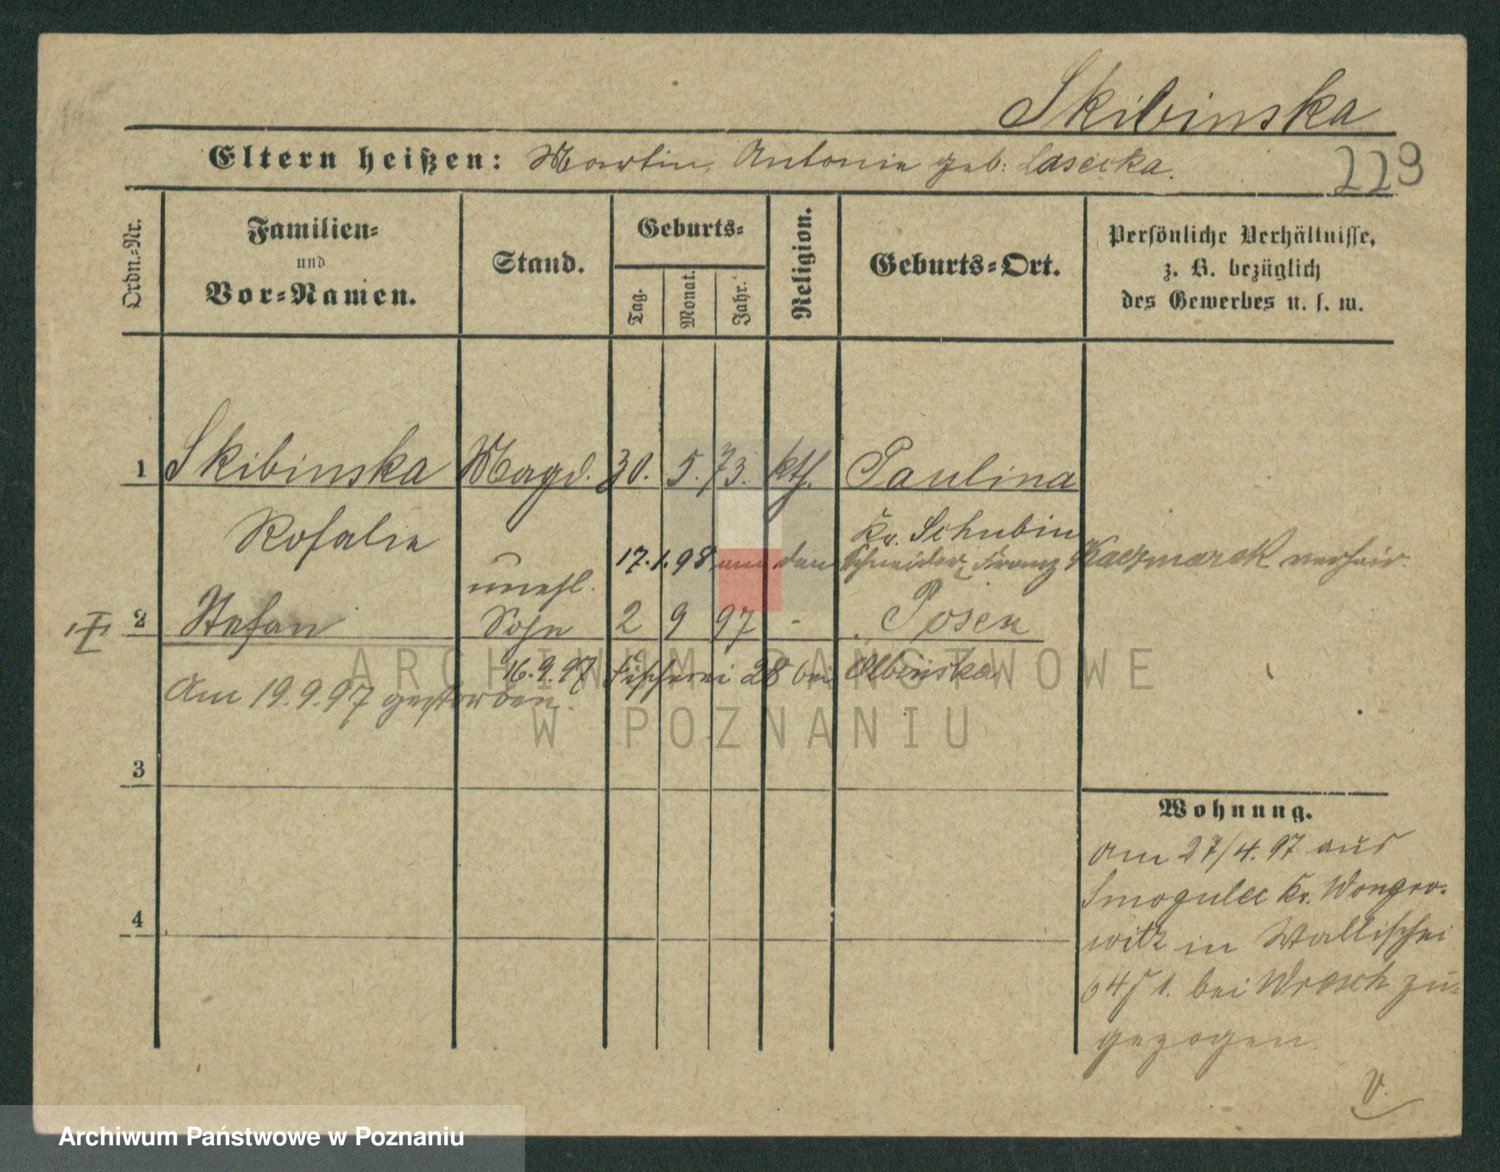 Skibinska
Eltern heißen: Martin, Antonie geb. Lasecka.
229
Ordn.=Nr.
Familien=
und
Vor=Namen.
Stand.
Geburts=
Tag.
Monat.
Jahr.
Religion.
Geburts=Ort.
Persönliche Verhältnisse,
z. B. bezüglich
des Gewerbes u. s. w.
1 Skibinska Magd. 30. 5. 73. kth. Paulina
Rosalie Kr. Schubin
17.1.98 mit dem Schneider Franz Kaczmarek verheir.
unehl.
2 Stefan Sohn 2 9 97 - Posen
16.9.97 Fischerei 28 bei Olbinska
Am 19.9.97 gestorben.
3
4
Wohnung.
Am 27/4.97 aus
Smogulec Kr. Wongro-
witz in Wallischei
64/1. bei Wrosch zu-
gezogen.
V.
ARCHIWUM PAŃSTWOWE
W POZNANIU
Archiwum Państwowe w Poznaniu